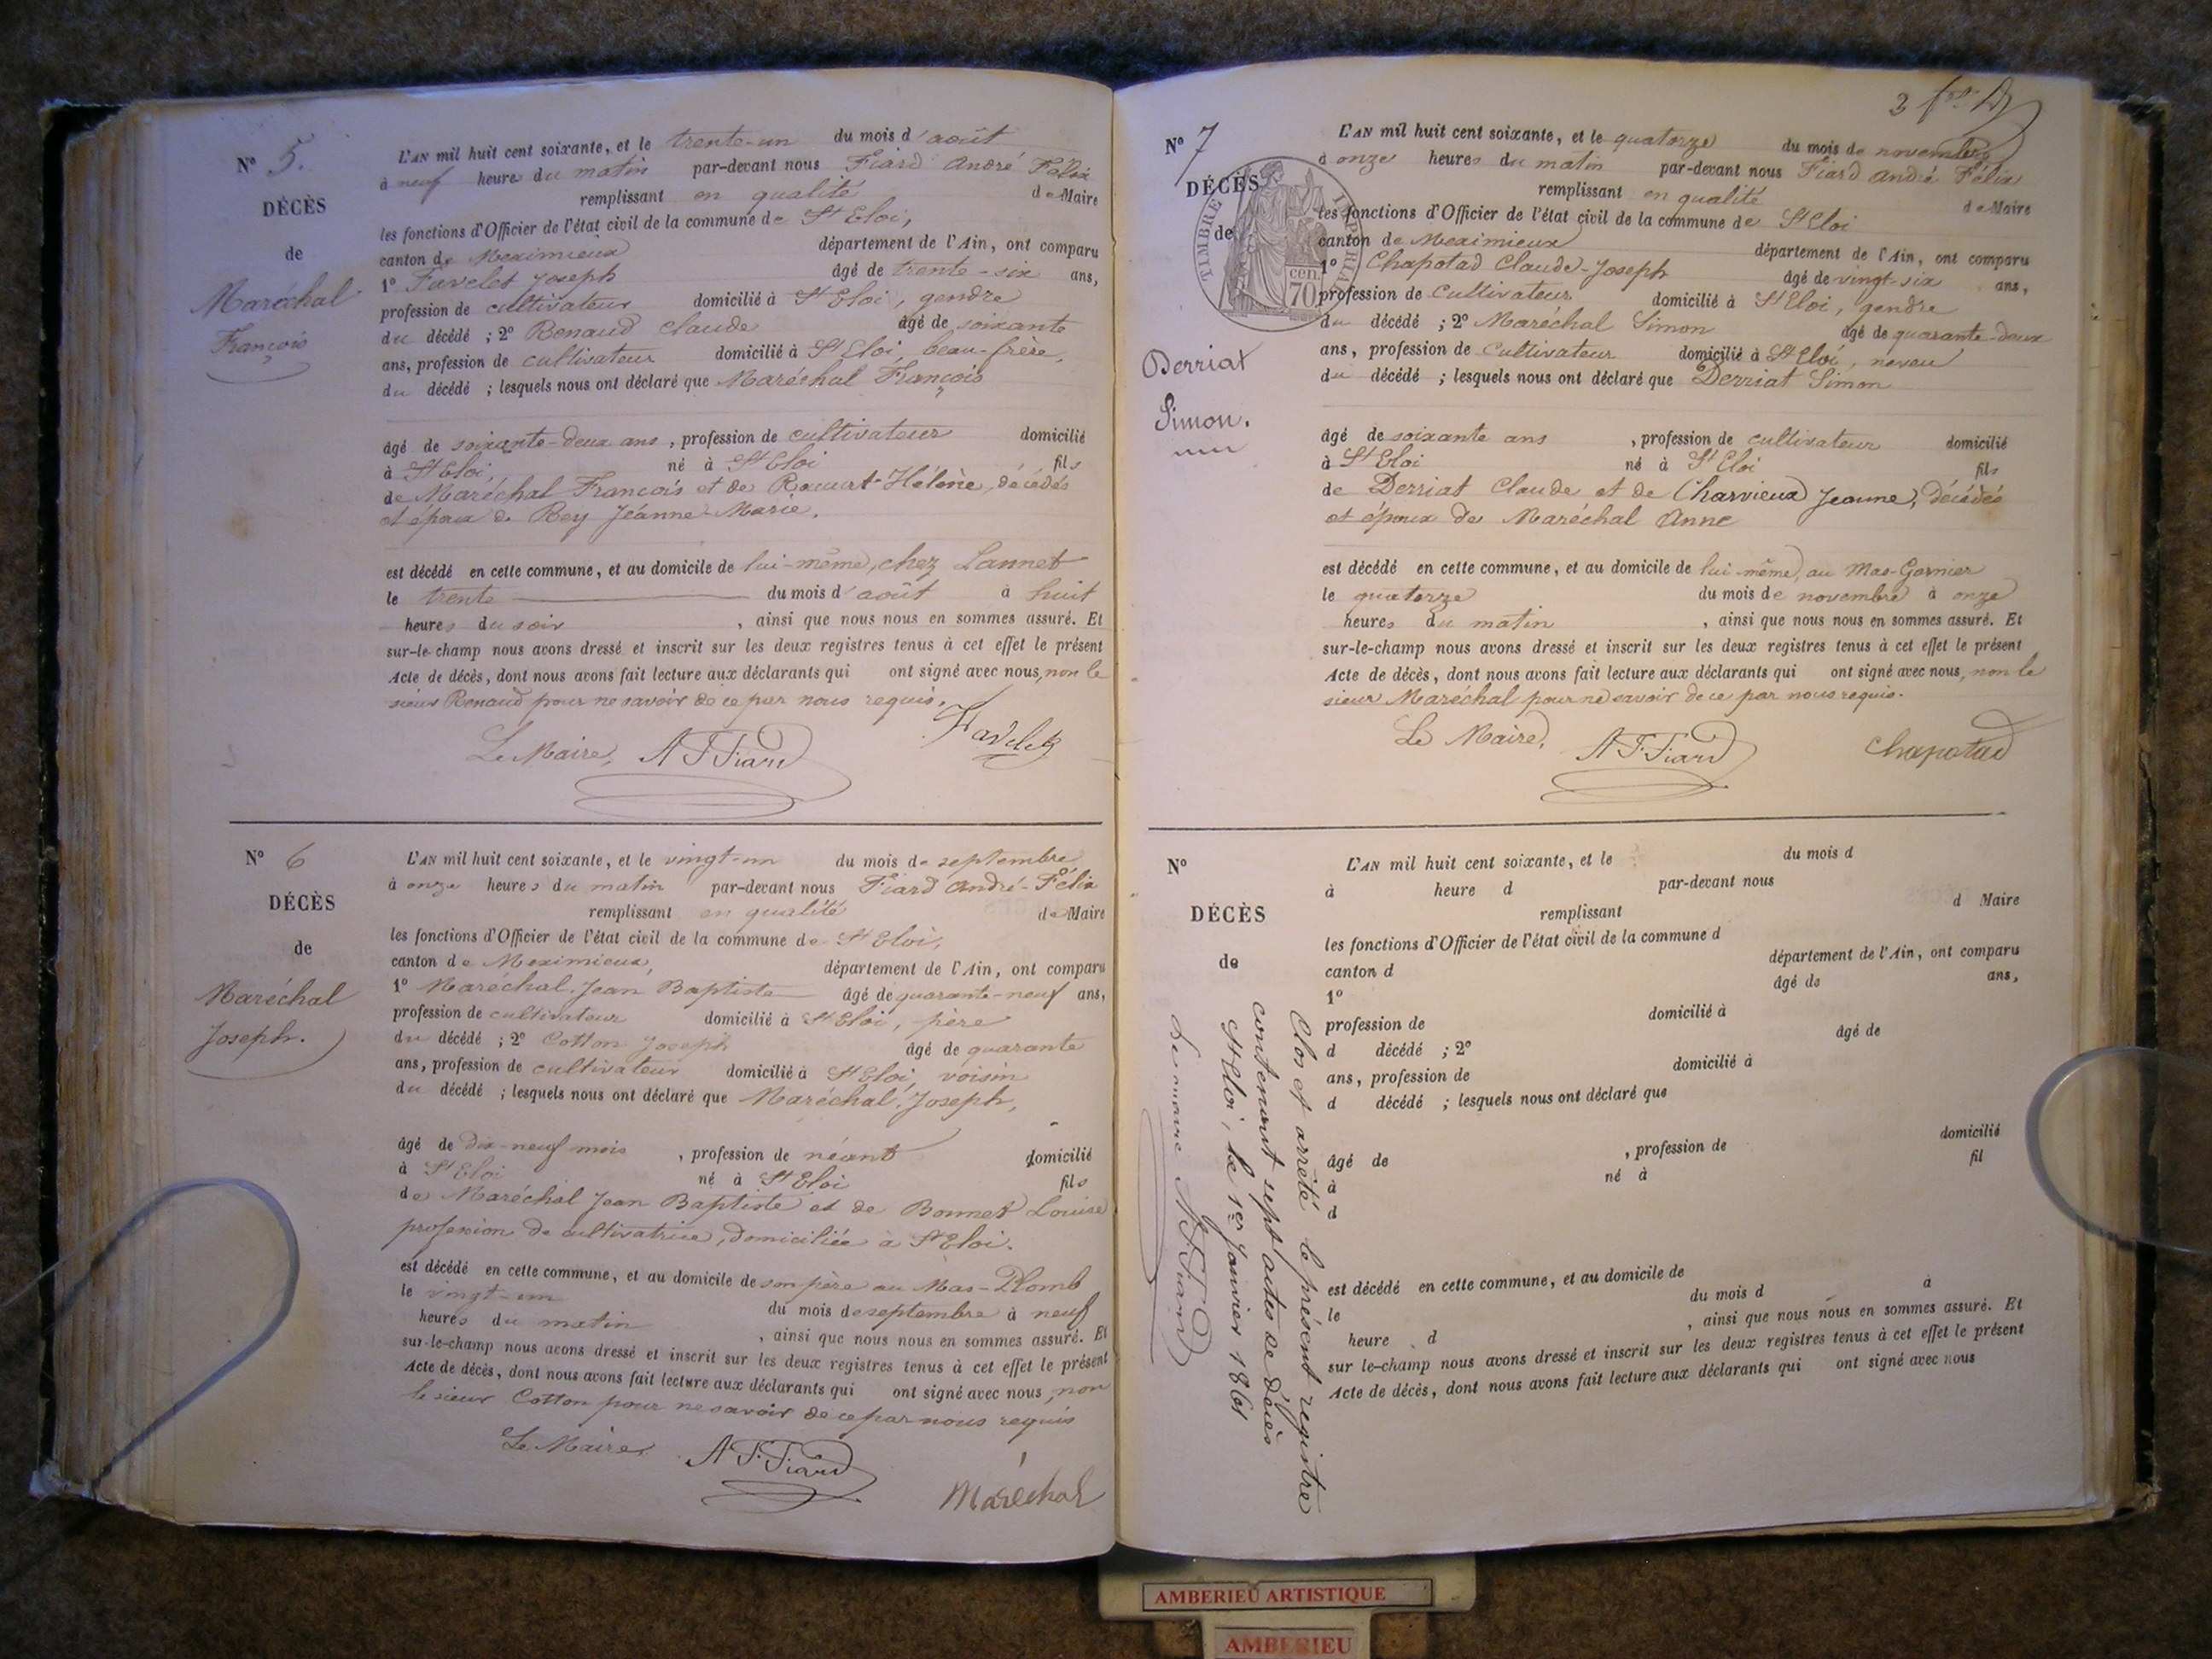 N° 5.
DÉCÈS
de
Maréchal
François
L'AN mil huit cent soixante, et le trente-un du mois d'août
à neuf heures du matin par-devant nous Fiard André Félix
remplissant en qualité de Maire
les fonctions d'Officier de l'état civil de la commune de St Eloi,
canton de Meximieux département de l'Ain, ont comparu
1° Favelet Joseph âgé de trente-six ans,
profession de cultivateur domicilié à St Eloi, gendre
du décédé ; 2° Renaud Claude âgé de soixante
ans, profession de cultivateur domicilié à St Eloi, beau-frère,
du décédé ; lesquels nous ont déclaré que Maréchal François
âgé de soixante-deux ans, profession de cultivateur domicilié
à St Eloi, né à St Eloi fils
de Maréchal François et de Hélène, décédés
et époux de Rey Jeanne-Marie.
est décédé en cette commune, et au domicile de lui-même, chez Lannet
le trente du mois d'août à huit
heures du soir, ainsi que nous nous en sommes assuré. Et
sur-le-champ nous avons dressé et inscrit sur les deux registres tenus à cet effet le présent
Acte de décès, dont nous avons fait lecture aux déclarants qui ont signé avec nous, non le
sieur Renaud pour ne savoir de ce par nous requis.
Le Maire, A F Fiard Favelet
N° 6
DÉCÈS
de
Maréchal
Joseph.
L'AN mil huit cent soixante, et le vingt-un du mois de septembre
à onze heures du matin par-devant nous Fiard André-Félix
remplissant en qualité de Maire
les fonctions d'Officier de l'état civil de la commune de St Eloi,
canton de Meximieux, département de l'Ain, ont comparu
1° Maréchal Jean Baptiste âgé de quarante-neuf ans,
profession de cultivateur domicilié à St Eloi, père
du décédé ; 2° Cotton Joseph âgé de quarante
ans, profession de cultivateur domicilié à St Eloi, voisin
du décédé ; lesquels nous ont déclaré que Maréchal, Joseph,
âgé de dix-neuf mois, profession de néant domicilié
à St Eloi né à St Eloi fils
de Maréchal Jean Baptiste et de Bonnet Louise
profession de cultivatrice, domiciliée à St Eloi.
est décédé en cette commune, et au domicile de son père au Mas-Plomb
le vingt-un du mois de septembre à neuf
heures du matin, ainsi que nous nous en sommes assuré. Et
sur-le-champ nous avons dressé et inscrit sur les deux registres tenus à cet effet le présent
Acte de décès, dont nous avons fait lecture aux déclarants qui ont signé avec nous, non
le sieur Cotton pour ne savoir de ce par nous requis
Le Maire, A F Fiard
Maréchal
N° 7
DÉCÈS
de
TIMBRE IMPÉRIAL
70 cen.
Derriat
Simon.
L'AN mil huit cent soixante, et le quatorze du mois de novembre
à onze heures du matin par-devant nous Fiard André Félix
remplissant en qualité de Maire
les fonctions d'Officier de l'état civil de la commune de St Eloi
canton de Meximieux département de l'Ain, ont comparu
1° Chapotad Claude-Joseph âgé de vingt-six ans,
profession de cultivateur domicilié à St Eloi, gendre
du décédé ; 2° Maréchal Simon âgé de quarante-deux
ans, profession de cultivateur domicilié à St Eloi, neveu
du décédé ; lesquels nous ont déclaré que Derriat Simon
âgé de soixante ans, profession de cultivateur domicilié
à St Eloi né à St Eloi fils
de Derriat Claude et de Charvieux Jeanne, décédés
et époux de Maréchal Anne
est décédé en cette commune, et au domicile de lui-même, au Mas-Garnier
le quatorze du mois de novembre à onze
heures du matin, ainsi que nous nous en sommes assuré. Et
sur-le-champ nous avons dressé et inscrit sur les deux registres tenus à cet effet le présent
Acte de décès, dont nous avons fait lecture aux déclarants qui ont signé avec nous, non le
sieur Maréchal pour ne savoir de ce par nous requis.
Le Maire, A F Fiard Chapotad
N°
DÉCÈS
de
L'AN mil huit cent soixante, et le du mois d
à heure d par-devant nous
remplissant d Maire
les fonctions d'Officier de l'état civil de la commune d
canton d département de l'Ain, ont comparu
1° âgé de ans,
profession de domicilié à
d décédé ; 2° âgé de
ans, profession de domicilié à
d décédé ; lesquels nous ont déclaré que
âgé de , profession de domicilié
à né à fil
d
est décédé en cette commune, et au domicile de
le du mois d à
heure d , ainsi que nous nous en sommes assuré. Et
sur le-champ nous avons dressé et inscrit sur les deux registres tenus à cet effet le présent
Acte de décès, dont nous avons fait lecture aux déclarants qui ont signé avec nous
Clos et arrêté le présent registre
contenant sept actes de décès
St Eloi, le 1er Janvier 1861
Le maire A F Fiard
AMBERIEU ARTISTIQUE
AMBERIEU